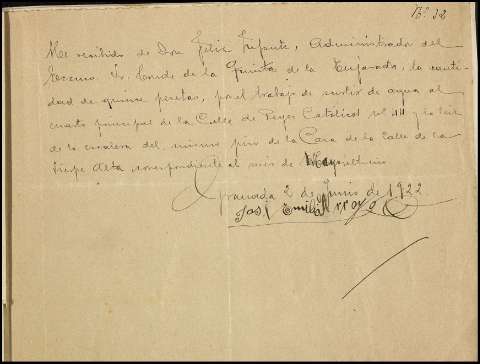 Nº 32
He recibido de Don Felix Infante, Administrador del
Excmo Sr. Conde de la Quinta de la Enjarada, la canti-
dad de quince pesetas, por el trabajo de surtir de agua al
cuarto principal de la Calle de Reyes Católicos nº 44 y la luz
de la escalera del mismo piso de la Casa de la Calle de la
Sierpe Alta, correspondiente al mes de Mayo último
Granada 2 de Junio de 1922
José Emilio Arroyo